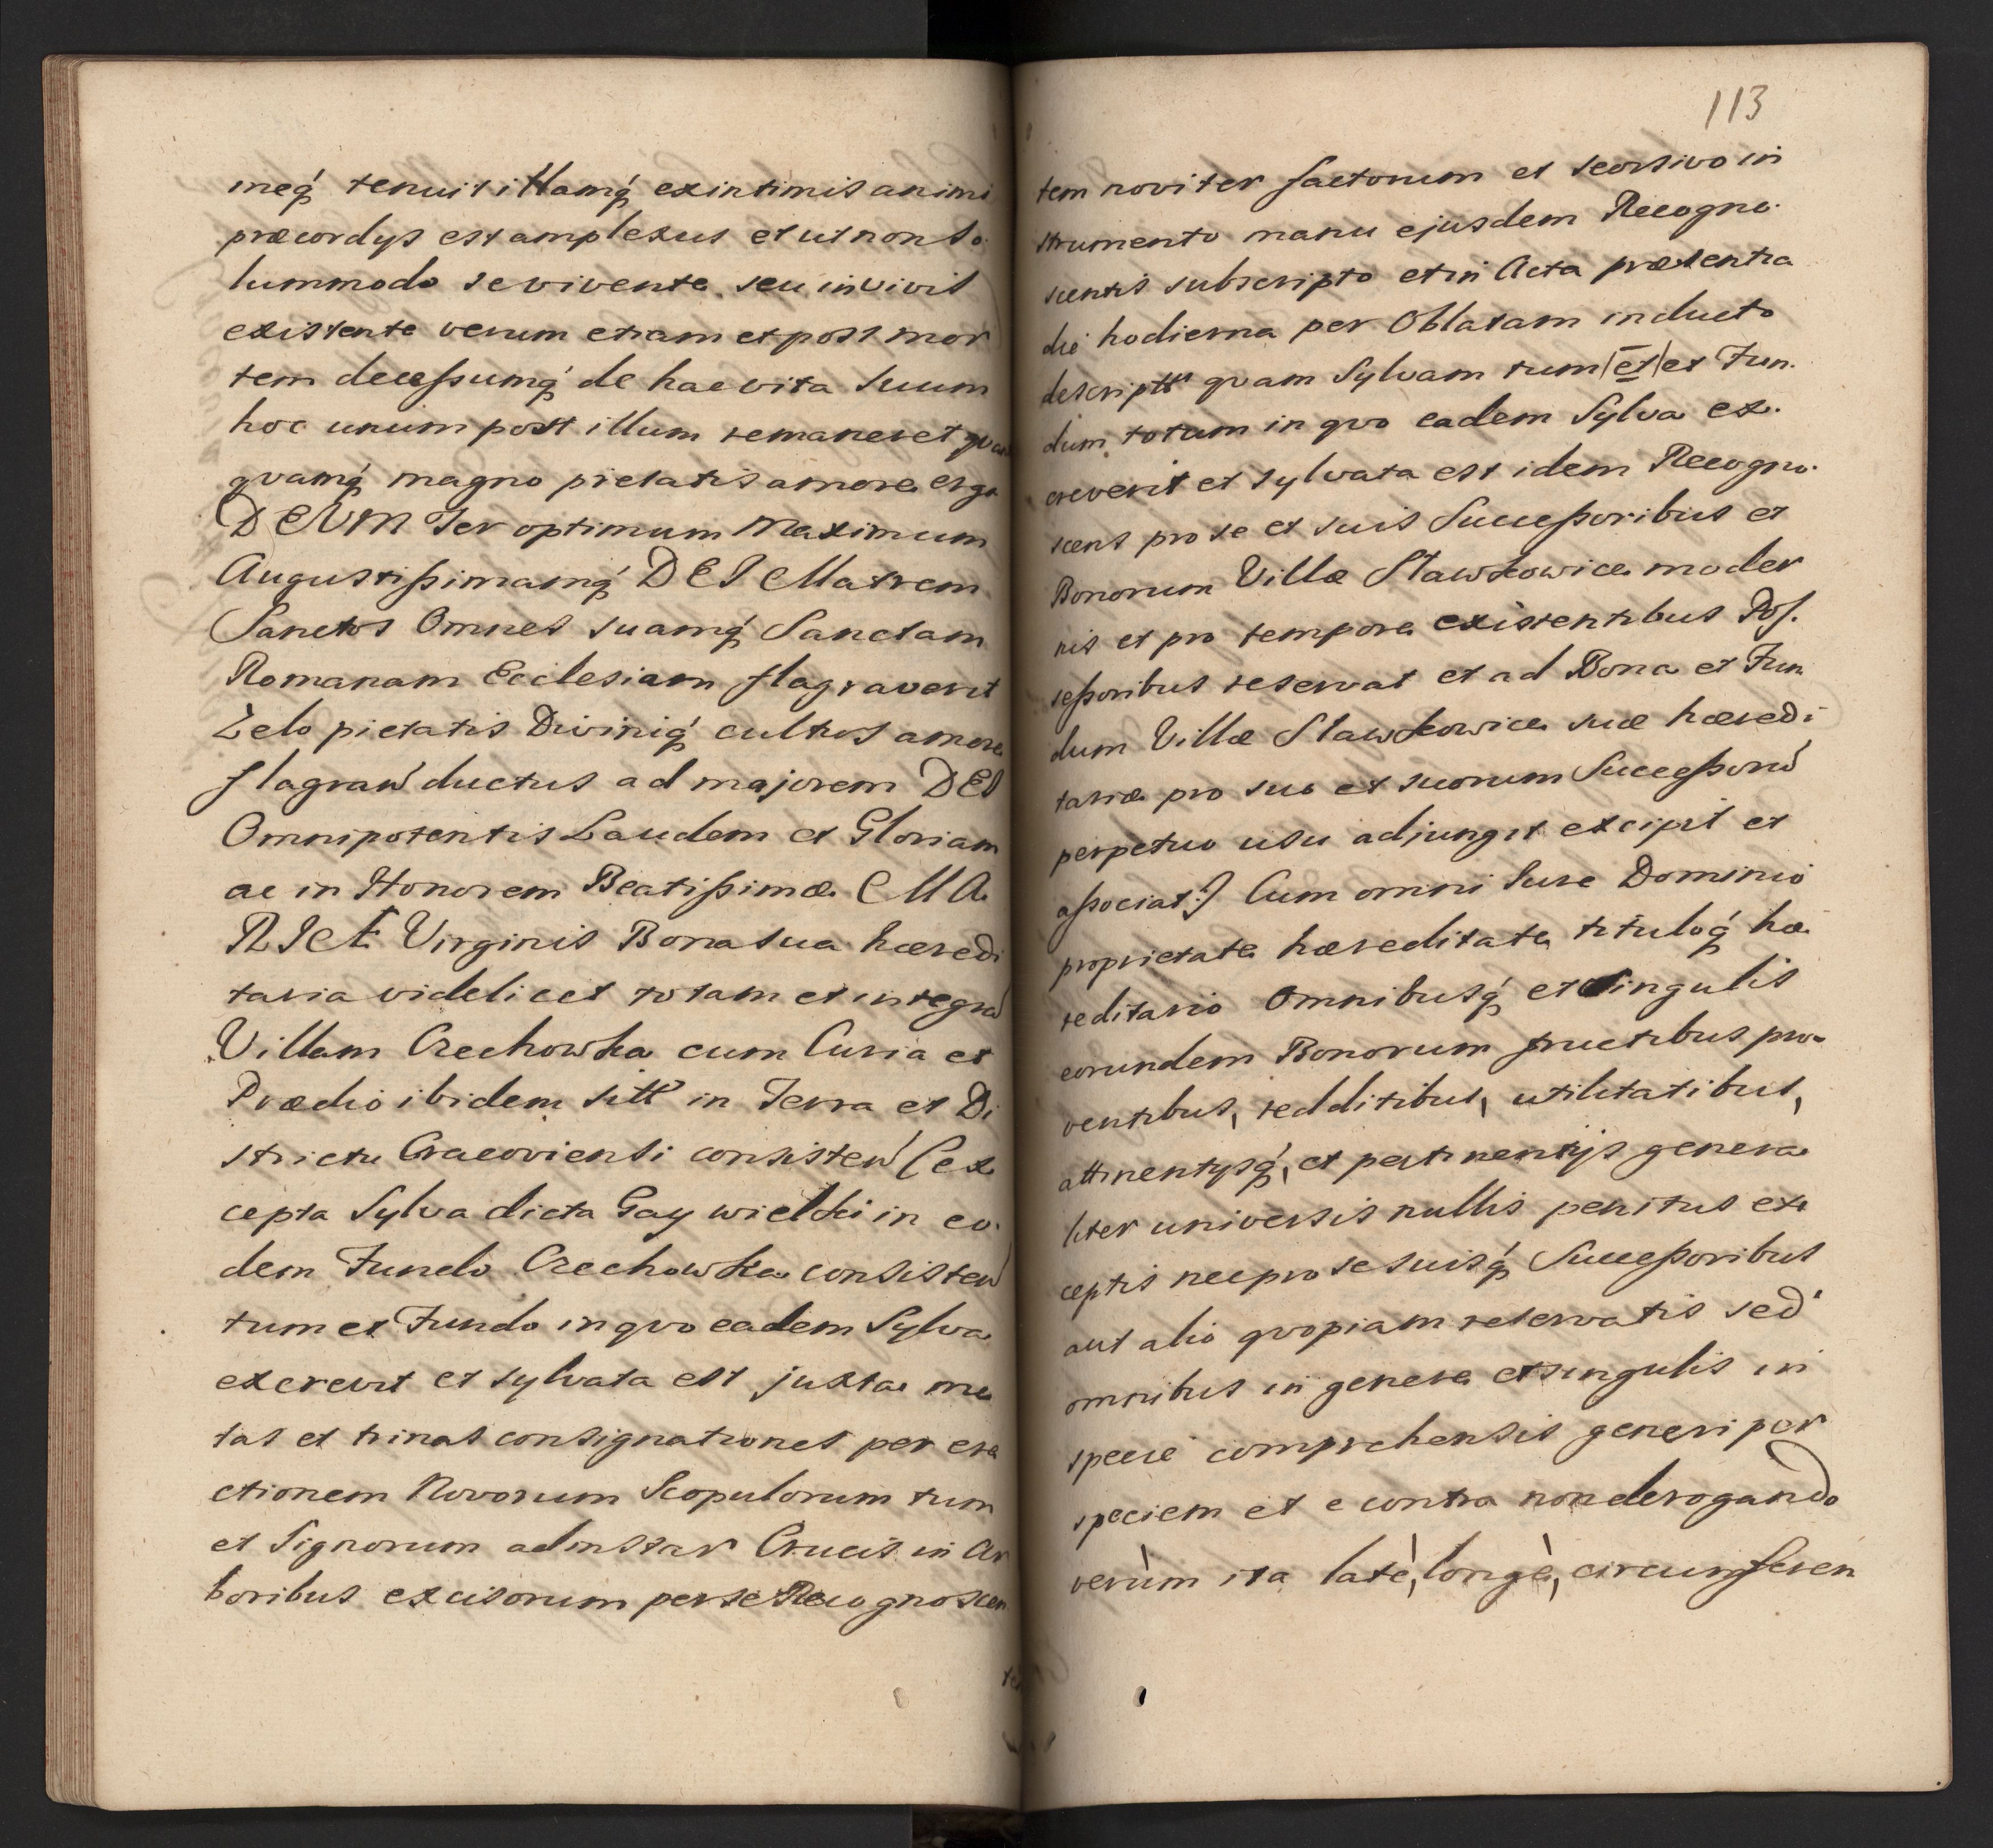 meq́ tenuit illamq́ ex intimis animi
præcordys est amplexus et ut non so
lummodo se vivente seu in vivis
existente verum etiam et post mor
tem decessumq́ de hac vita suum
hoc unum post illum remaneret
qvamq́ magno pietatis amore erga
DEUM Ter optimum Maximum
Augustissimamq́ DEI Matrem
Sanctos Omnes suamq́ Sanctam
Romanam Ecclesiam flagraverit
Zelo pietatis Diviniq́ cultus amore
flagran̄ ductus ad majorem DEI
Omnipotentis Laudem et Gloriam
ac in Honorem Beatissimæ MA
RIÆ Virginis Bona sua hæredi
taria videlicet totam et integrā
Villam Czechowka cum Curia et
Prædio ibidem sitt' in Terra et Di
strictu Cracoviensi consisten̄ (ex
cepta Sylva dicta Gay wielki in eo.
dem Fundo Czechowka consisten̄
tum et Fundo in qvo eadem Sylva
excrevit et sylvata est juxta me
tas et trinas consignationes per ere
ctionem Novorum Scopulorum tum
et Signorum ad instar Crucis in Ar
boribus excisorum per se Recognoscen
113
tem noviter factorum et seorsivo in
strumento manu ejusdem Recogno.
scentis subscripto et in Acta præsentia
die hodierna per Oblatam inducto
descriptt' qvam Sylvam tum |et| et Fun.
dum totum in qvo eadem Sylva ex.
creverit et sylvata est idem Recogno.
scens pro se et suis Successoribus et
Bonorum Villæ Stawkowice moder
nis et pro tempore existentibus Pos.
sessoribus reservat et ad Bona et Fun
dum Villæ Stawkowice suæ hæredi
tariæ pro suo et suorum Successorū
perpetuo usu adjungit excipit et
associat:) Cum omni Iure Dominio
proprietate hæreditate tituloq́ hæ
reditario Omnibusq́ et Singulis
eorundem Bonorum fructibus pro-
ventibus, redditibus, utilitatibus,
attinentysq́, et pertinentijs genera
liter universis nullis penitus ex
ceptis nec pro se suisq́ Successoribus
aut alio qvopiam reservatis sed
omnibus in genere et singulis in
specie comprehensis generi per
speciem et e contra non derogando
verùm ita latè, longè, circumferen